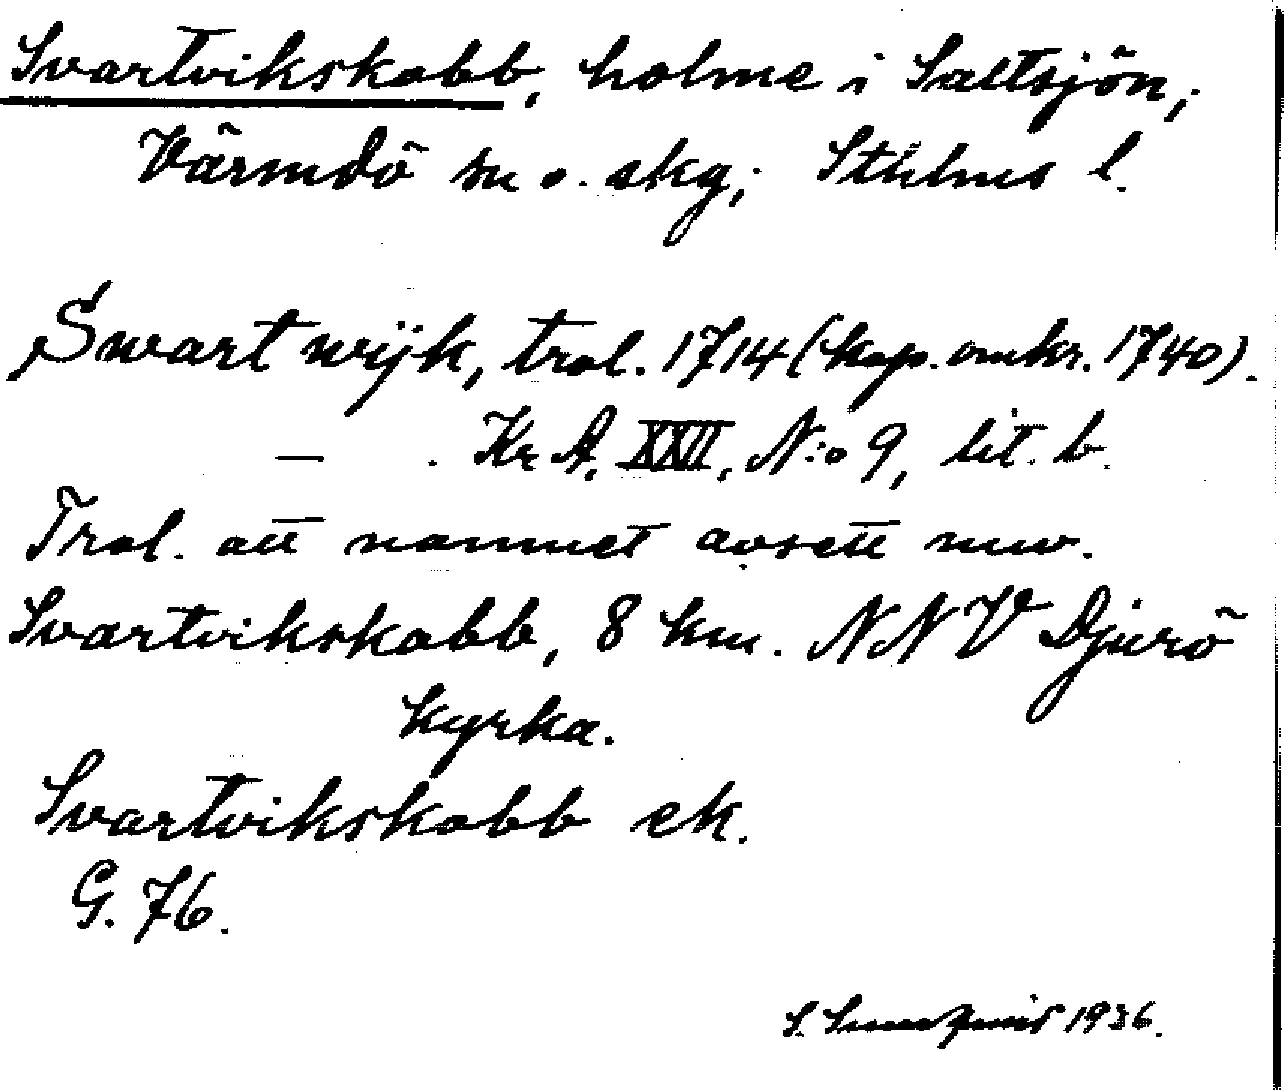 Svartvikskobb, holme i Saltsjön,
Värmdö sn o. skg; Sthlms l.
Swart wijk, trol. 1714 (kop. omkr. 1740).
— . Kr A, XXII, N:o 9, lit. b.
Trol. att namnet avsett nuv.
Svartvikskobb, 8 km. NNV Djurö
kyrka.
Svartvikskobb ek.
G. 76.
S. 1936.